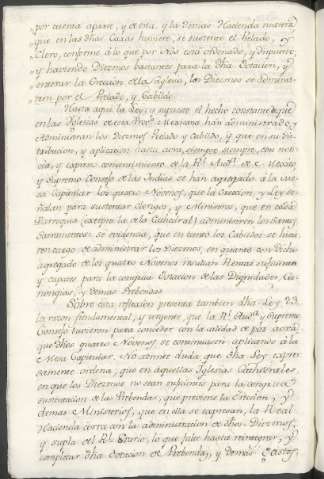 por cuenta aparte, y de esta, y la demas Hacienda nuestra
que en las dhas Caxas huviere, se sustente el Prelado, y
Clero, conforme á lo que por Nos está ordenado, y dispuesto;
y haviendo Diezmos bastantes para la dha Dotacion, y
enterar la Ereccion de la Yglesia, los Diezmos se administren por el Prelado, y Cabildo
Hasta aqui la Ley, y supuesto el hecho constante de que
en las Yglesias de esta Provª Mexicana han administrado, y
Administran los Diezmos Prelado y Cabildo, y que en su distribucion, y aplicacion hasta aora, siempre con noticia, y expreso consentimiento de la Rl Audª de Mexico
y Supremo Consejo de las Indias se han agregado á la
Capitular los quatro Novenos, que la Ereccion, y Ley señalan para sustentar Clerigos, y Ministros, que en cada
Parroquia (excepto la de la Cathedral) administren los Santos
Sacramentos: se evidencia, que en tanto los Cabildos se hicieron cargo de administrar los Diezmos, en quanto con dicho
agregado de los quatro Novenos resultan Rentas suficientes
y capaces para la congrua Dotacion de las Dignidades, Canongias, y demas Prebendas
Sobre esta reflexion presenta tambien dha Ley 23
la razon fundamental, y urgente, que la Rl Audª y Supremo
Consejo tuvieron para conceder con la calidad de por aora
que dhos quatro Novenos se continuasen aplicados á la
Mesa Capitular. No admite duda que dha Ley expresamente ordena, que en aquellas Yglesias Cathedrales
en que los Diezmos no sean suficientes para la congrua
sustentacion de las Prebendas, que previene la Ereccion, y
demas Ministerios, que en ella se expresan, la Real
Hacienda corra con la administracion de dhos Diezmos,
y supla del Rl Erario, lo que falte hasta reintegrar, y
completar dha Dotacion de Prebendas, y demas Gastos,